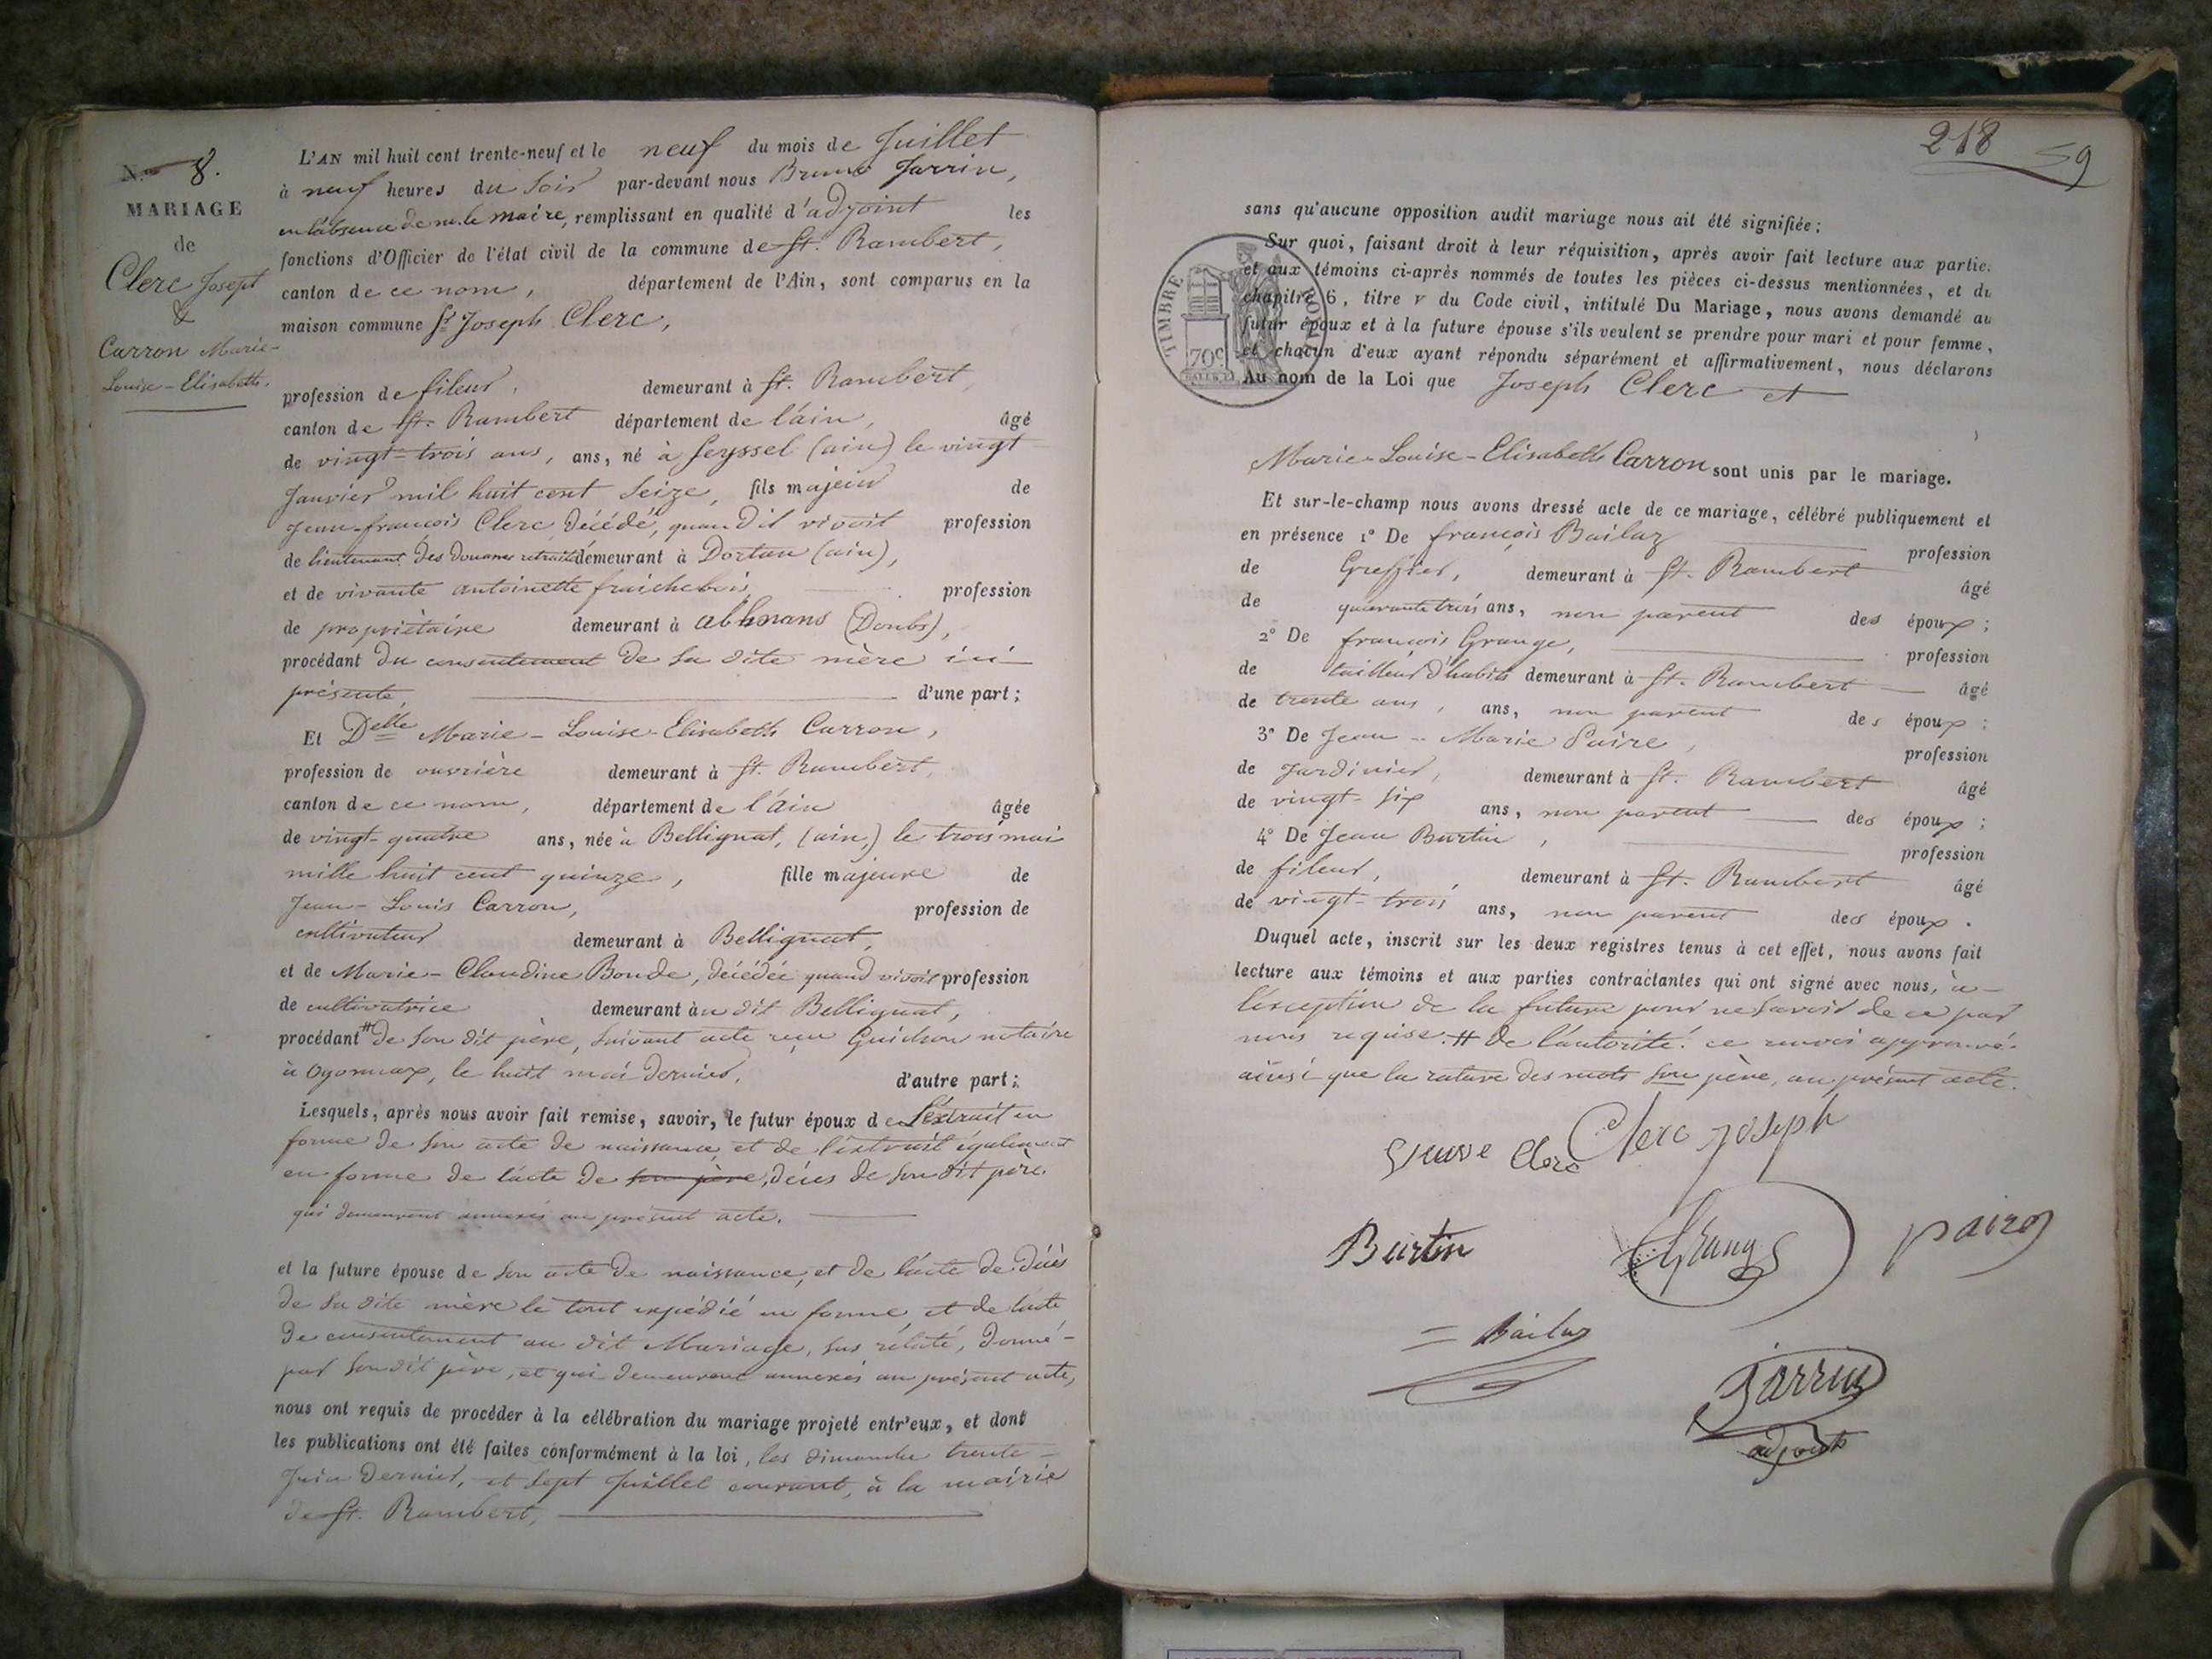 N.o 8.
MARIAGE
de
Clerc Joseph
&
Carron Marie-
Louise-Elisabeth.
L'AN mil huit cent trente-neuf et le neuf du mois de Juillet
à neuf heures du Soir par-devant nous Bruno Jarrin,
en l'absence de m. le maire, remplissant en qualité d'adjoint les
fonctions d'Officier de l'état civil de la commune de St. Rambert,
canton de ce nom, département de l'Ain, sont comparus en la
maison commune Sr Joseph Clerc,
profession de fileur, demeurant à St. Rambert,
canton de St. Rambert département de l'ain, âgé
de vingt-trois ans, ans, né à Seyssel (ain) le vingt
Janvier mil huit cent Seize, fils majeur de
Jean-françois Clerc, décédé, quand il vivoit profession
de lieutenant des Douanes retraité demeurant à Dortan (ain),
et de vivante antoinette fraichebois profession
de propriétaire demeurant à abbenans (Doubs),
procédant du consentement de sa dite mère ici
présente d'une part;
Et Delle Marie-Louise-Elisabeth Carron,
profession de ouvrière demeurant à St. Rambert,
canton de ce nom, département de l'ain âgée
de vingt-quatre ans, née à Bellignat, (ain,) le trois mai
mille huit cent quinze, fille majeure de
Jean-Louis Carron, profession de
cultivateur demeurant à Bellignat,
et de Marie-Claudine Bonde, décédée quand vivoit profession
de cultivatrice demeurant au dit Bellignat,
procédant # de son dit père, suivant acte reçu Guichon notaire
à Oyonnax, le huit mai dernier, d'autre part;
Lesquels, après nous avoir fait remise, savoir, le futur époux de l'extrait en
forme de son acte de naissance, et de l'extrait également
en forme de l'acte de son père, décès de son dit père
qui demeurent annexés au présent acte.
et la future épouse de son acte de naissance, et de l'acte de décès
de sa dite mère le tout expédié en forme, et de l'acte
de consentement au dit Mariage, sus rélaté, donné
par son dit père, et qui demeurent annexés au présent acte,
nous ont requis de procéder à la célébration du mariage projeté entr'eux, et dont
les publications ont été faites conformément à la loi, les dimanche trente
Juin dernier, et sept Juillet courant, à la mairie
de St. Rambert,
218 59
sans qu'aucune opposition audit mariage nous ait été signifiée;
Sur quoi, faisant droit à leur réquisition, après avoir fait lecture aux partie.
et aux témoins ci-après nommés de toutes les pièces ci-dessus mentionnées, et du
chapitre 6, titre v du Code civil, intitulé Du Mariage, nous avons demandé au
futur époux et à la future épouse s'ils veulent se prendre pour mari et pour femme,
et chacun d'eux ayant répondu séparément et affirmativement, nous déclarons
Au nom de la Loi que Joseph Clerc et
TIMBRE ROYAL
70c
Marie-Louise-Elisabeth Carron sont unis par le mariage.
Et sur-le-champ nous avons dressé acte de ce mariage, célébré publiquement et
en présence 1° De françois Bailaz profession
de Greffier, demeurant à St. Rambert âgé
de quarante trois ans, non parent des époux;
2° De françois Grange, profession
de tailleur d'habits demeurant à St. Rambert âgé
de trente ans, ans, non parent des époux;
3° De Jean-Marie Paire, profession
de Jardinier, demeurant à St. Rambert âgé
de vingt-six ans, non parent des époux;
4° De Jean Burtin, profession
de fileur, demeurant à St. Rambert âgé
de vingt-trois ans, non parent des époux.
Duquel acte, inscrit sur les deux régistres tenus à cet effet, nous avons fait
lecture aux témoins et aux parties contractantes qui ont signé avec nous, à
l'exception de la future pour ne savoir de ce par
nous requise. # de l'autorité. ce renvoi approuvé
ainsi que la rature des mots son père, au présent acte.
veuve Clerc Clerc Joseph
Burtin Grange paire
Bailaz
Jarrin
adjoint